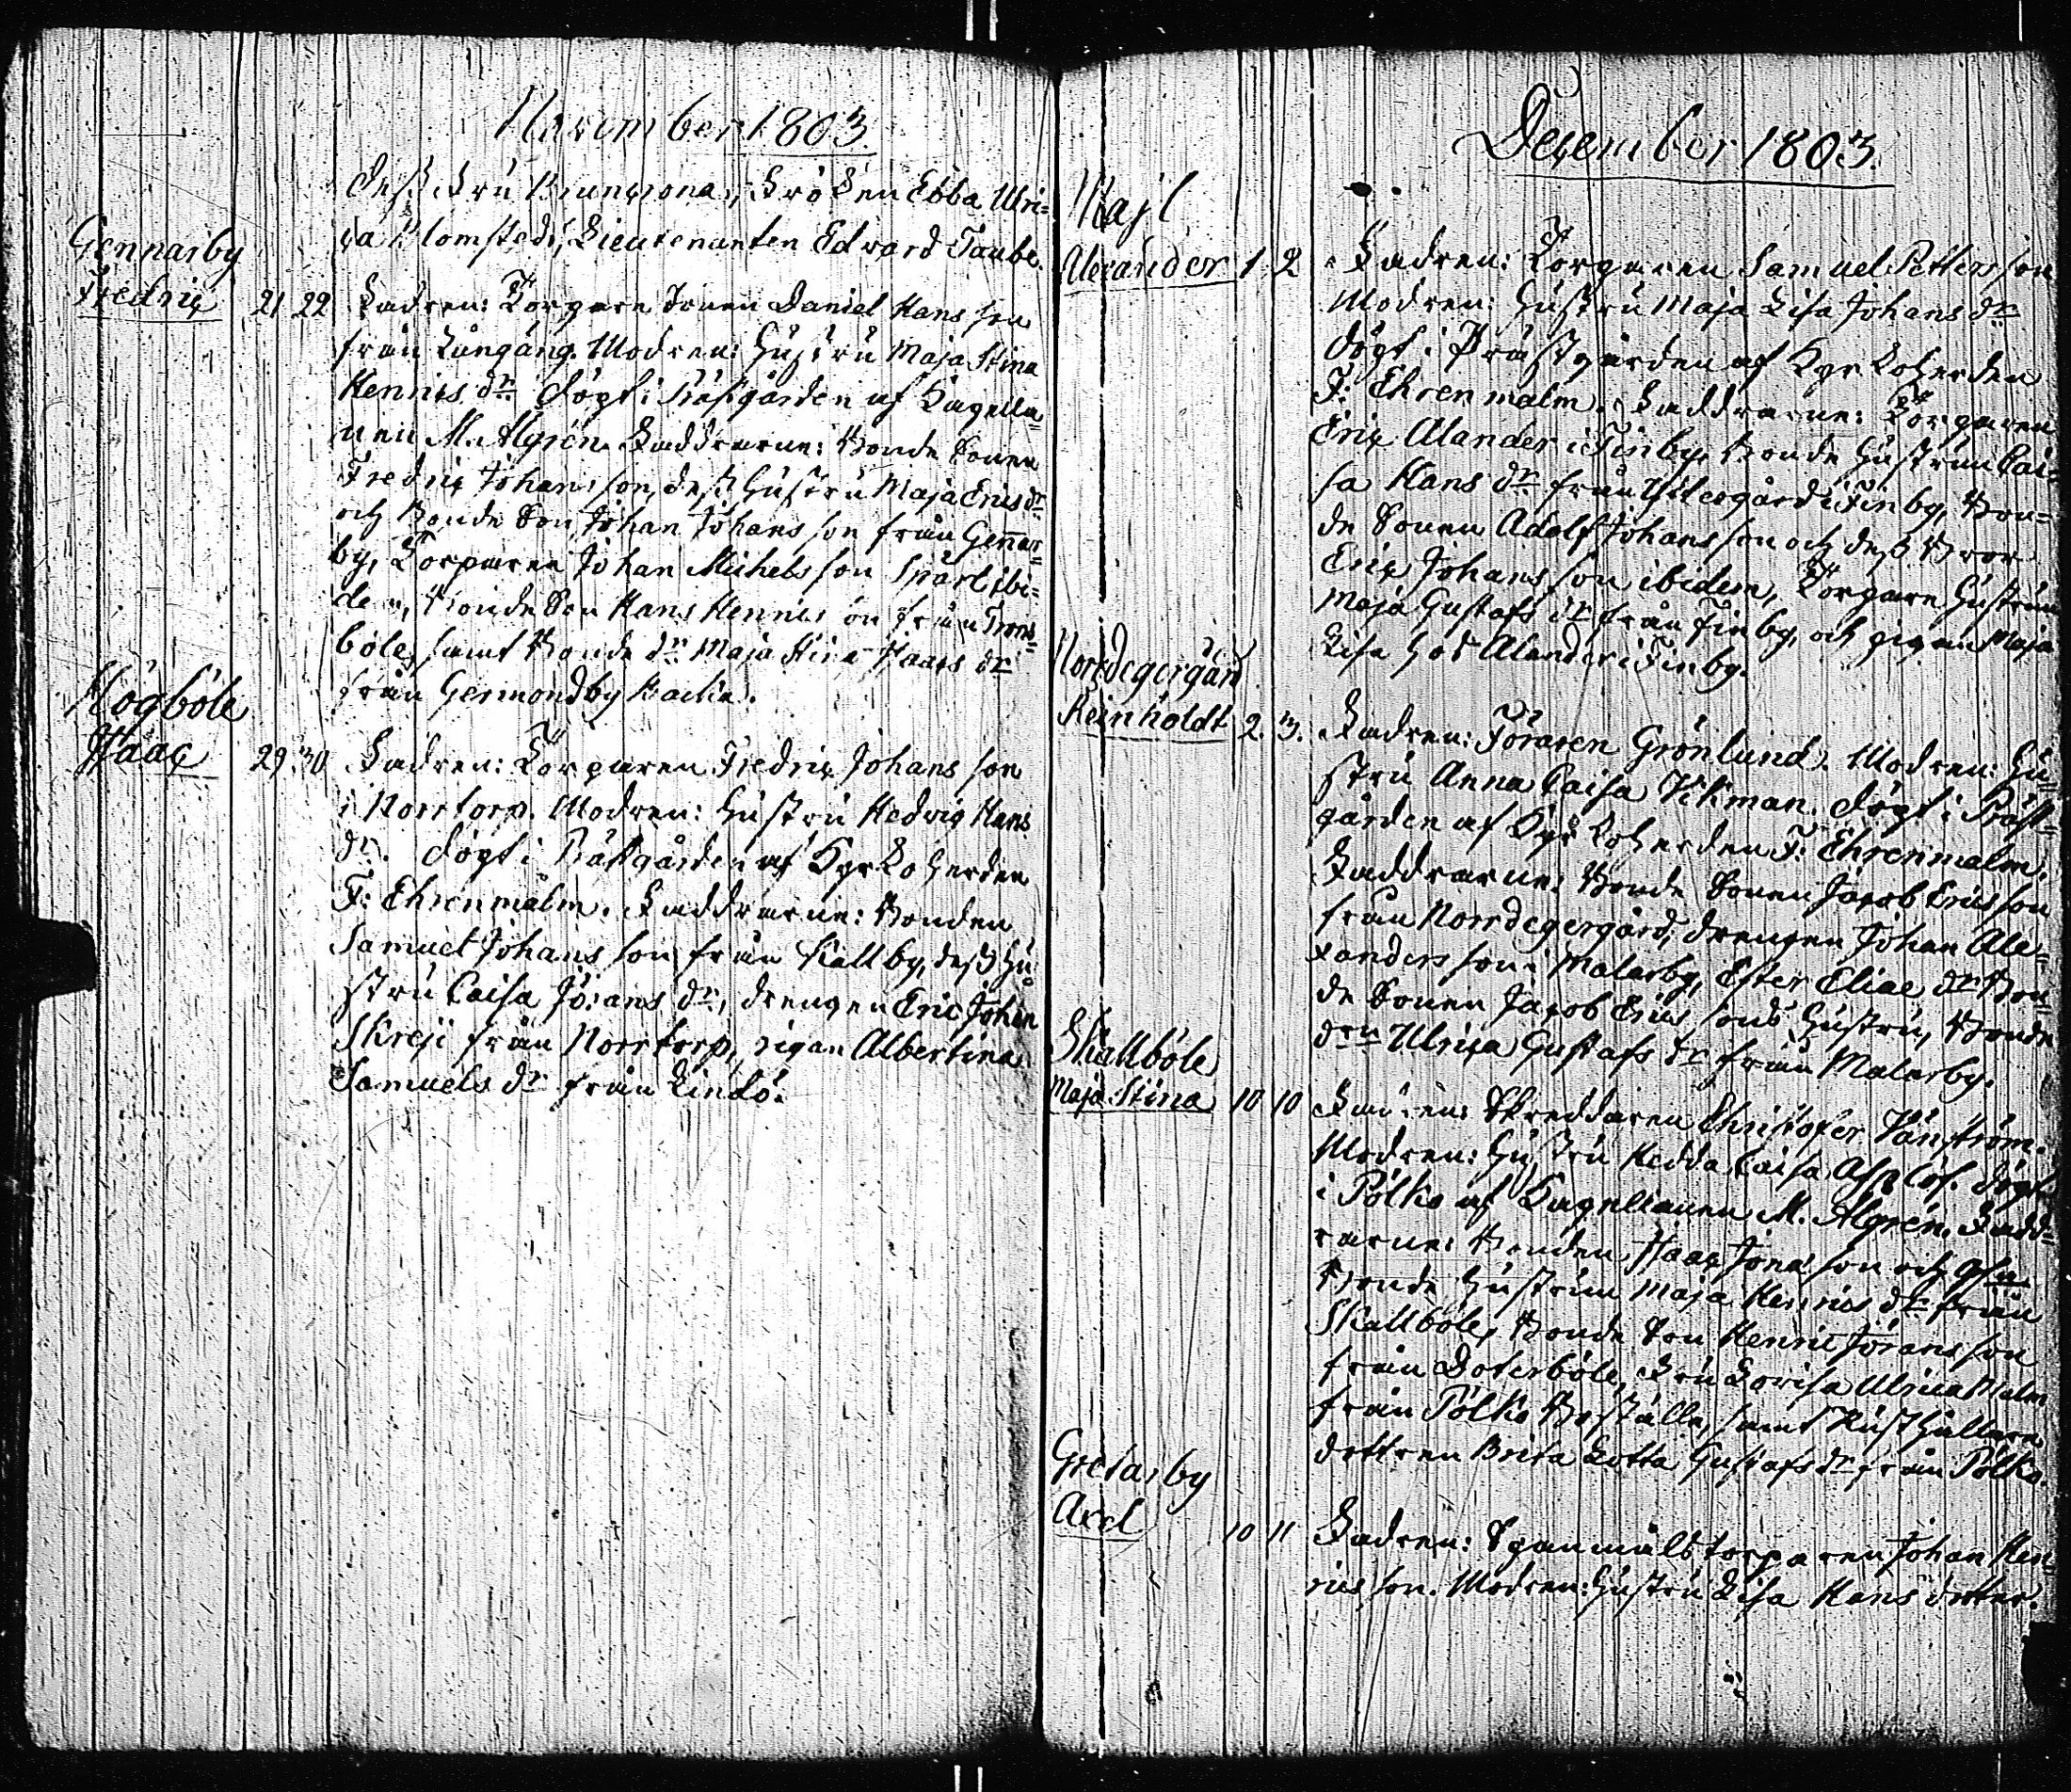 November 1803.
dess Fru Bruncrona, Fröken Ebba Ulri=
ca Blomstedt, Lieutenanten Edvard Taube.
Gennarby
Fredric 21 22 Fadren: Torpare Sonen Daniel Hans son
från Långäng. Modren: Hustru Maja Stina
Henrics dr. Döpt i Prästgården af Capella=
nen M. Algren. Faddrarne: Bonde Sonen
Fredric Johans son, dess Hustru Maja Erics dr
och Bonde Son Johan Johans son från Gennar=
by, Torparen Johan Michels son Spárf ibi=
dem, Bonde Son Hans Henrics son från Trons=
böle, samt Bonde dr Maja Stina Isaacs dr
från Germondby Backa.
Högböle
Isaac 29. 30 Fadren: Torparen Fredric Johans son
i Norrtorp. Modren: Hustru Hedvig Hans
dr. Döpt i Prästgården af Kyrkoherden
F: Ehrenmalm. Faddrarne: Bonden
Samuel Johans son från Kallby, dess Hu=
stru Caisa Jörans dr, drengen Eric Johan
Skreji från Norrtorp, pigan Albertina
Samuels dr från Lindö.
December 1803.
Alexander 1. 2 Fadren: Torparen Samuel Petters son
Modren: Hustru Maja Lisa Johans dr
döpt i Prästgården af Kyrkoherden
F: Ehrenmalm. Faddrarne: Torparen
Eric Alander i Finby, Bonde Hustrun Cai=
sa Hans dr från Yttergård i Finby, Bon=
de Sonen Adolf Johans son och dess Bror
Eric Johans son ibidem, Torpare Hustrun
Maja Gustafs dr från Finby, och pigan Maja
Lisa hos Alander i Finby.
Norrdegergård
Reinholdt 2. 3. Fadren: Föraren Grönlund. Modren: Hu=
stru Anna Caisa Vikman. döpt i Präst=
gården af Kyrkoherden F: Ehrenmalm.
Faddrarne: Bonde Sonen Jacob Erics son
från Norrdegergård, drengen Johan Ale=
xanders son i Malarby, Ester Eliae dr Bon=
de Sonen Jacob Erics sons Hustru, Bonde
dren Ulrica Gustafs dr från Malarby.
Skallböle
Maja Stina 10 10 Fadren: Skreddaren Christofer Vänström.
Modren: Hustru Hedda Caisa Asplöf. döpt
i Pölko af Capellanen M. Algren. Fadd=
rarne: Bonden Isaac Jona son och
Bonde Hustrun Maja Henrics dr från
Skallböle, Bonde Son Henric Jörans son
från Doterböle, Fru Lovisa Ulrica Malm
från Pölko Boställe, samt Rusthållare
dottren Brita Lotta Gustafs dr från Pölko.
Gretarby
Axel 10 11 Fadren: Spanmåls torparen Johan Hen
rics son. Modren: Hustru Lisa Hans dotter.